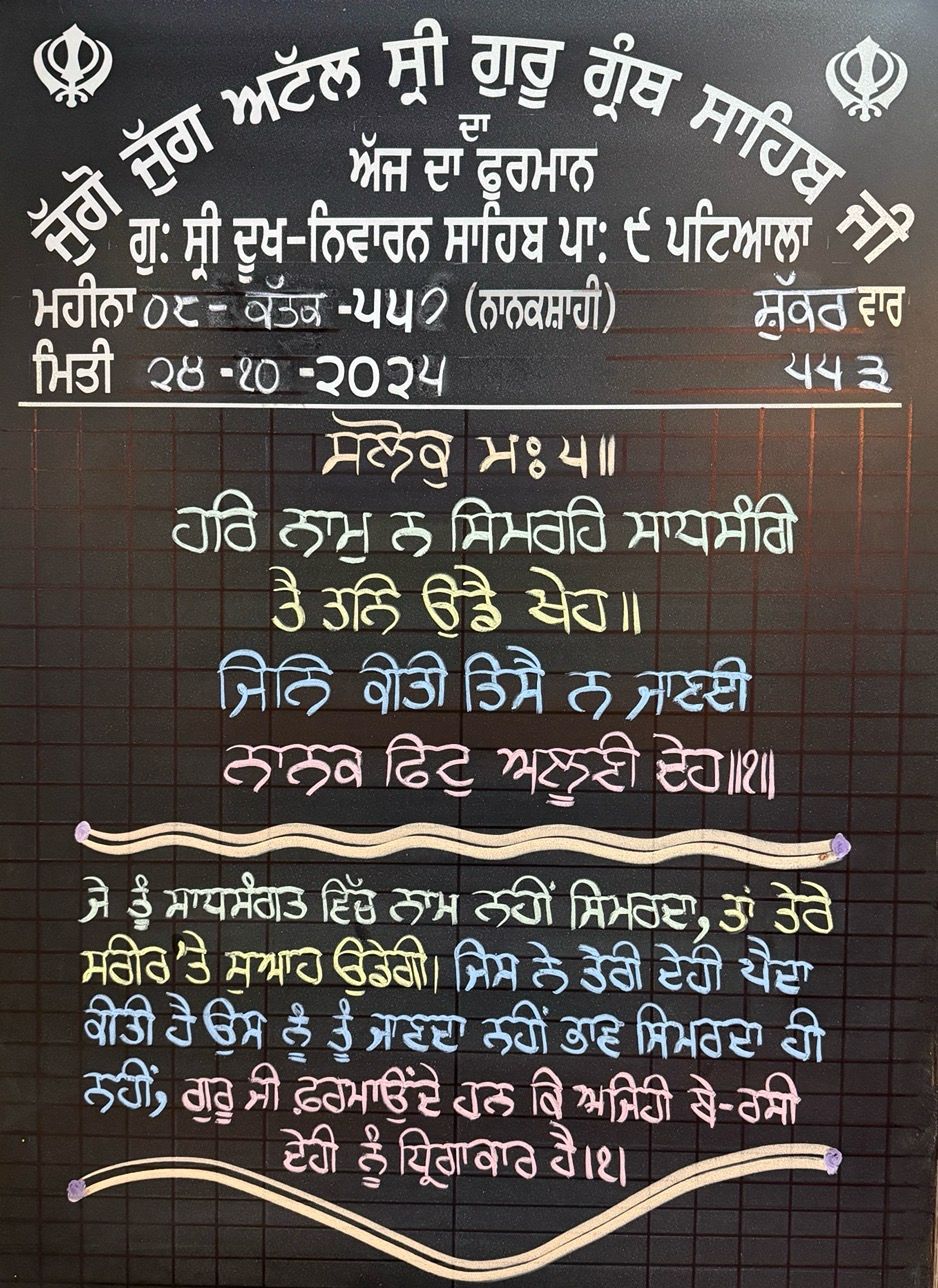 ਜੁੱਗੋ ਜੁੱਗ ਅਟੱਲ ਸ੍ਰੀ ਗੁਰੂ ਗ੍ਰੰਥ ਸਾਹਿਬ ਜੀ
ਦਾ
ਅੱਜ ਦਾ ਫੁਰਮਾਨ
ਗੁ: ਸ੍ਰੀ ਦੂਖ-ਨਿਵਾਰਨ ਸਾਹਿਬ ਪਾ: ੯ ਪਟਿਆਲਾ
ਮਹੀਨਾ ੦੮- ਕੱਤਕ -੫੫੭ (ਨਾਨਕਸ਼ਾਹੀ) ਸ਼ੁੱਕਰ ਵਾਰ
ਮਿਤੀ ੨੪ -੧੦ -੨੦੨੫ ੫੫੩
ਸਲੋਕੁ ਮਃ ੫॥
ਹਰਿ ਨਾਮੁ ਨ ਸਿਮਰਹਿ ਸਾਧਸੰਗਿ
ਤੈ ਤਨਿ ਉਡੈ ਖੇਹ॥
ਜਿਨਿ ਕੀਤੀ ਤਿਸੈ ਨ ਜਾਣਈ
ਨਾਨਕ ਫਿਟੁ ਅਲੂਣੀ ਦੇਹ॥੧॥
ਜੇ ਤੂੰ ਸਾਧਸੰਗਤ ਵਿੱਚ ਨਾਮ ਨਹੀਂ ਸਿਮਰਦਾ, ਤਾਂ ਤੇਰੇ
ਸਰੀਰ 'ਤੇ ਸੁਆਹ ਉਡੇਗੀ। ਜਿਸ ਨੇ ਤੇਰੀ ਦੇਹੀ ਪੈਦਾ
ਕੀਤੀ ਹੈ ਉਸ ਨੂੰ ਤੂੰ ਜਾਣਦਾ ਨਹੀਂ ਭਾਵ ਸਿਮਰਦਾ ਹੀ
ਨਹੀਂ, ਗੁਰੂ ਜੀ ਫ਼ਰਮਾਉਂਦੇ ਹਨ ਕਿ ਅਜਿਹੀ ਬੇ-ਰਸੀ
ਦੇਹੀ ਨੂੰ ਧ੍ਰਿਗਾਕਾਰ ਹੈ।੧।